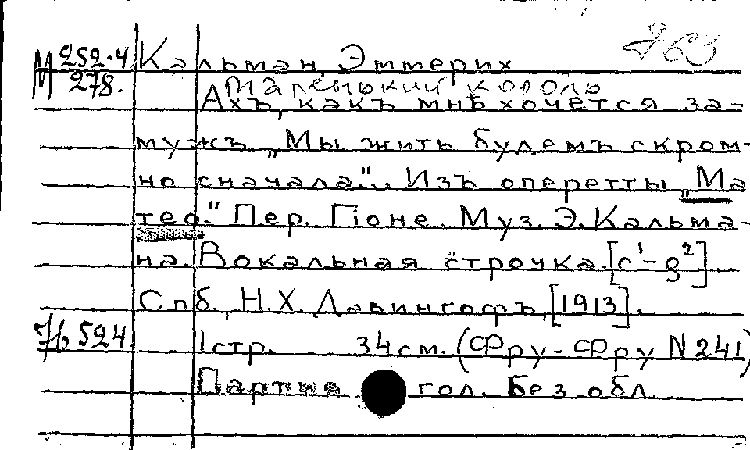 763
М 252.4 Кальман, Эммерих
278. Маленький король
Ахъ, какъ мнѣ хочется за-
мужъ „Мы жить будемъ скром-
но сначала". Изъ оперетты „Ма
тео." Пер. Гіоне. Муз. Э. Кальма-
на. Вокальная строчка. [c¹-g²]
Спб., Н.Х. Давингофъ, [1913].
76524 1 стр. 34 см. (Фру-Фру N 241)
Партия гол. Без обл.